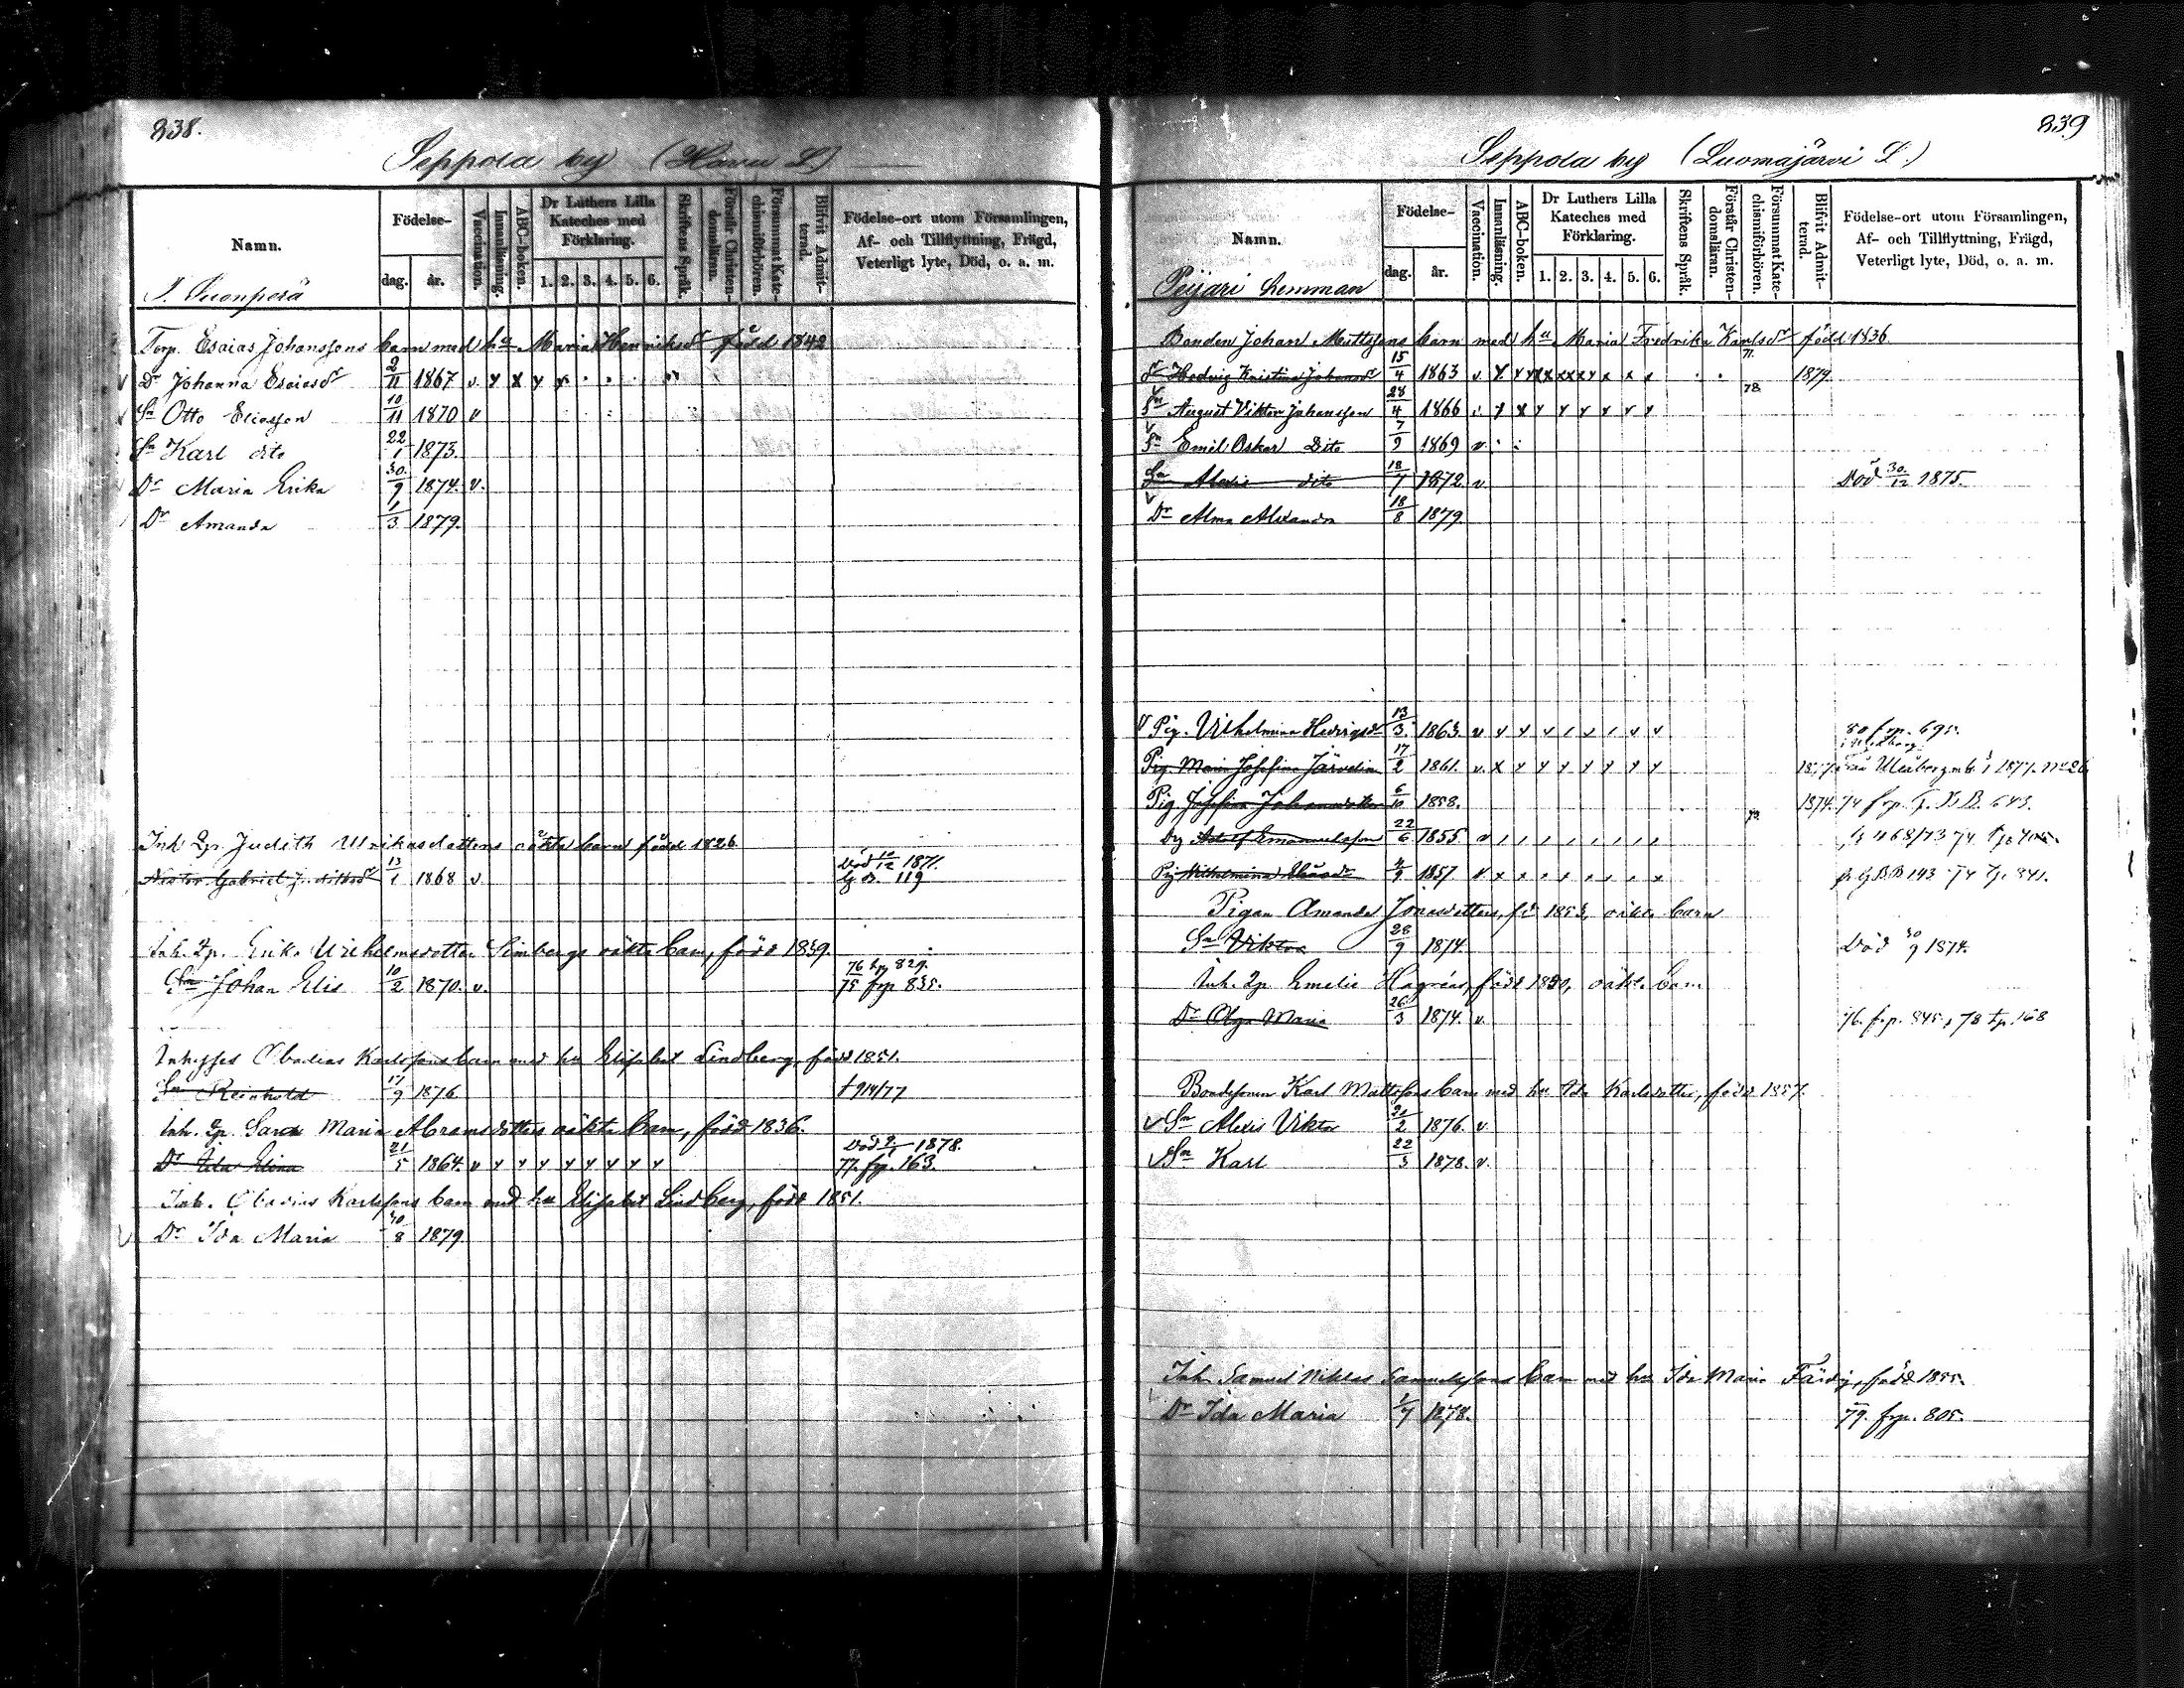 238.
Seppola by (Havu L)
Namn.
Födelse-
dag.
år.
Vaccination.
Innanläsning.
ABC-boken.
Dr Luthers Lilla
Kateches med
Förklaring.
1. 2. 3. 4. 5. 6.
Skriftens Språk.
Förstår Christen-
domsläran.
Försummat Kate-
chismiförhören.
Blifvit Admit-
terad.
Födelse-ort utom Församlingen,
Af- och Tillflyttning, Frägd,
Veterligt lyte, Död, o. a. m.
Torp. Esaias Johanssons barn med hu Maria Henriksdr född 1842
Dr Johanna Esaiasdr 2/11 1867 v
Sn Otto Eliasson 10/11 1870 v
Sn Karl dito 22/1 1873.
Dr Maria Erika 30/9 1874. v.
Dr Amanda 1/3 1879.
Inh. Qp. Judith Ulrikasdotters oäkta barn född 1826
Gabriel 13/1 1868 v
Död 10/12 1871.
119
Inh. Qp. Erika Wilhelmsdotter Simbergs oäkta barn, född 1839.
Sn Johan Elis 10/2 1870. v.
76 tp 829.
75 frp 835.
Inhyses Obadias Karlssons barn med hu Elisabet Lindberg, född 1851.
Sn Reinhold 17/9 1876
† 9/4/77
Inh. Qp. Sara Maria Abramsdotters oäkta barn, född 1836.
Dr Ida Elina 21/5 1864. v
Död 1878.
77. frp. 163.
Inh. Obadias Karlssons barn med hu Elisabet Lindberg, född 1851.
Dr Ida Maria 30/8 1879
239
Seppola by (Luomajärvi L.)
Namn.
Peijari hemman
Födelse-
dag.
år.
Vaccination.
Innanläsning.
ABC-boken.
Dr Luthers Lilla
Kateches med
Förklaring.
1. 2. 3. 4. 5. 6.
Skriftens Språk.
Förstår Christen-
domsläran.
Försummat Kate-
chismiförhören.
Blifvit Admit-
terad.
Födelse-ort utom Församlingen,
Af- och Tillflyttning, Frägd,
Veterligt lyte, Död, o. a. m.
Bonden Johan Mattssons barn med hu Maria Fredrika Karlsdr född 1836
Dr Hedvig Kristina Johansdr 15/4 1863 v 77. 1879.
Sn August Viktor Johansson 28/4 1866 78.
Sn Emil Oskar Dito 7/9 1869 v
Sn Alexis dito 18/7 1872 v. Död 30/12 1875.
Dr Alma Alexandra 18/8 1879
Pig. Vilhelmina Hedvigsdr 13/3 1863. v 80 frp. 695.
Pig. Maria Josefina Järvelin 17/2 1861. v. 1877. från Uleåborg 1877. No 26
Pig. Josefina Johansdotter 6/10 1858. 1874. 74 frp. 643.
Drg Adolf Emanuelsson 22/6 1855. v
Pig Vilhelmina 4/9 1857 v 841.
Pigan Amanda Jonasdotters, fd 1853, oäkta barn
Sn Viktor 28/9 1874. Död 30/9 1874.
Inh. Qp Emelie Hagréns, född 1850, oäkta barn.
Dr Olga Maria 26/3 1874. v. 76. frp. 845, 78 tp. 168
Bondesonen Karl Mattssons barn med hu Ida Karlsdotter, född 1857.
Sn Alexis Viktor 20/2 1876. v.
Sn Karl 22/3 1878. v.
Inh. Samuel Niklas Samuelssons barn med hu Ida Maria Färdig, född 1855.
Dr Ida Maria 1/7 1878. 79. frp. 805.